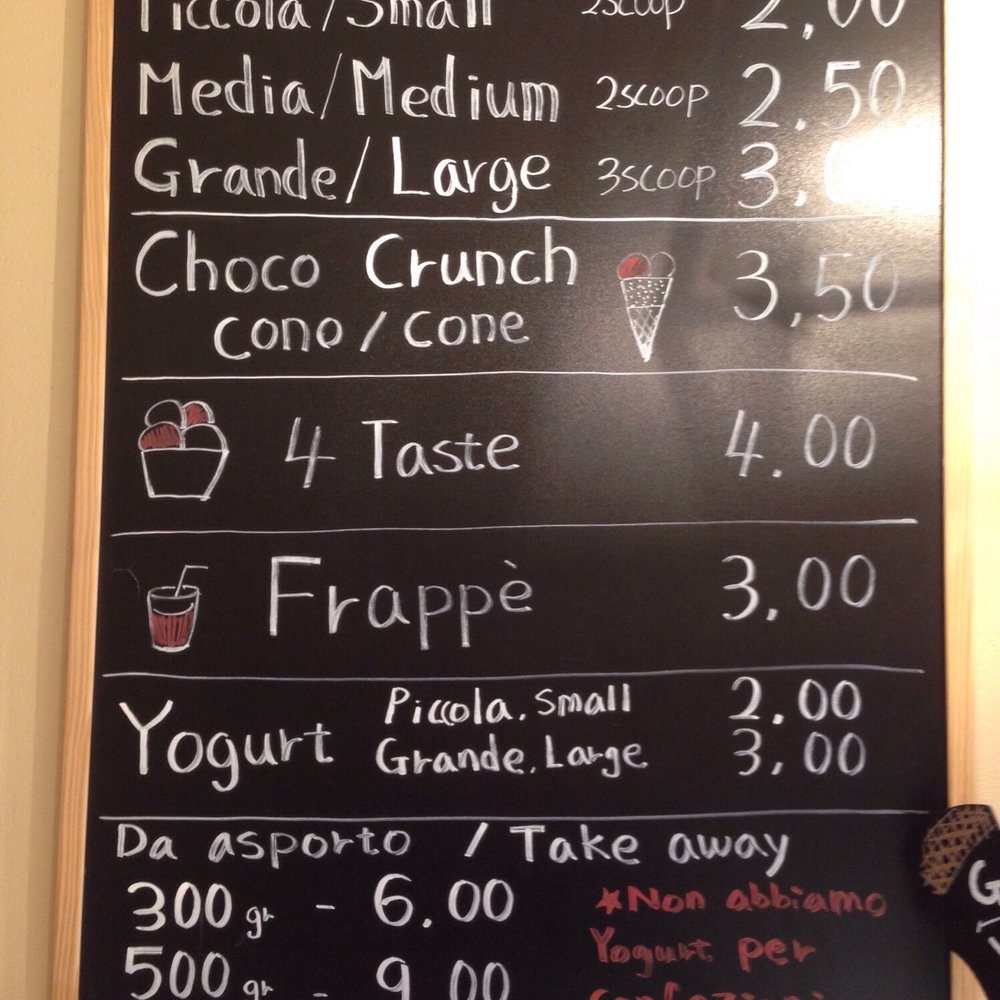 Piccola/Small 2scoop 2,00
Media/Medium 2scoop 2.50
Grande/Large 3scoop 3,
Choco Crunch 3,50
cono/cone
4 Taste 4.00
Frappè 3,00
Yogurt
Piccola. Small 2.00
Grande. Large 3,00
Da asporto / Take away
300 gr - 6.00
500 gr - 9.00
*Non abbiamo
Yogurt per